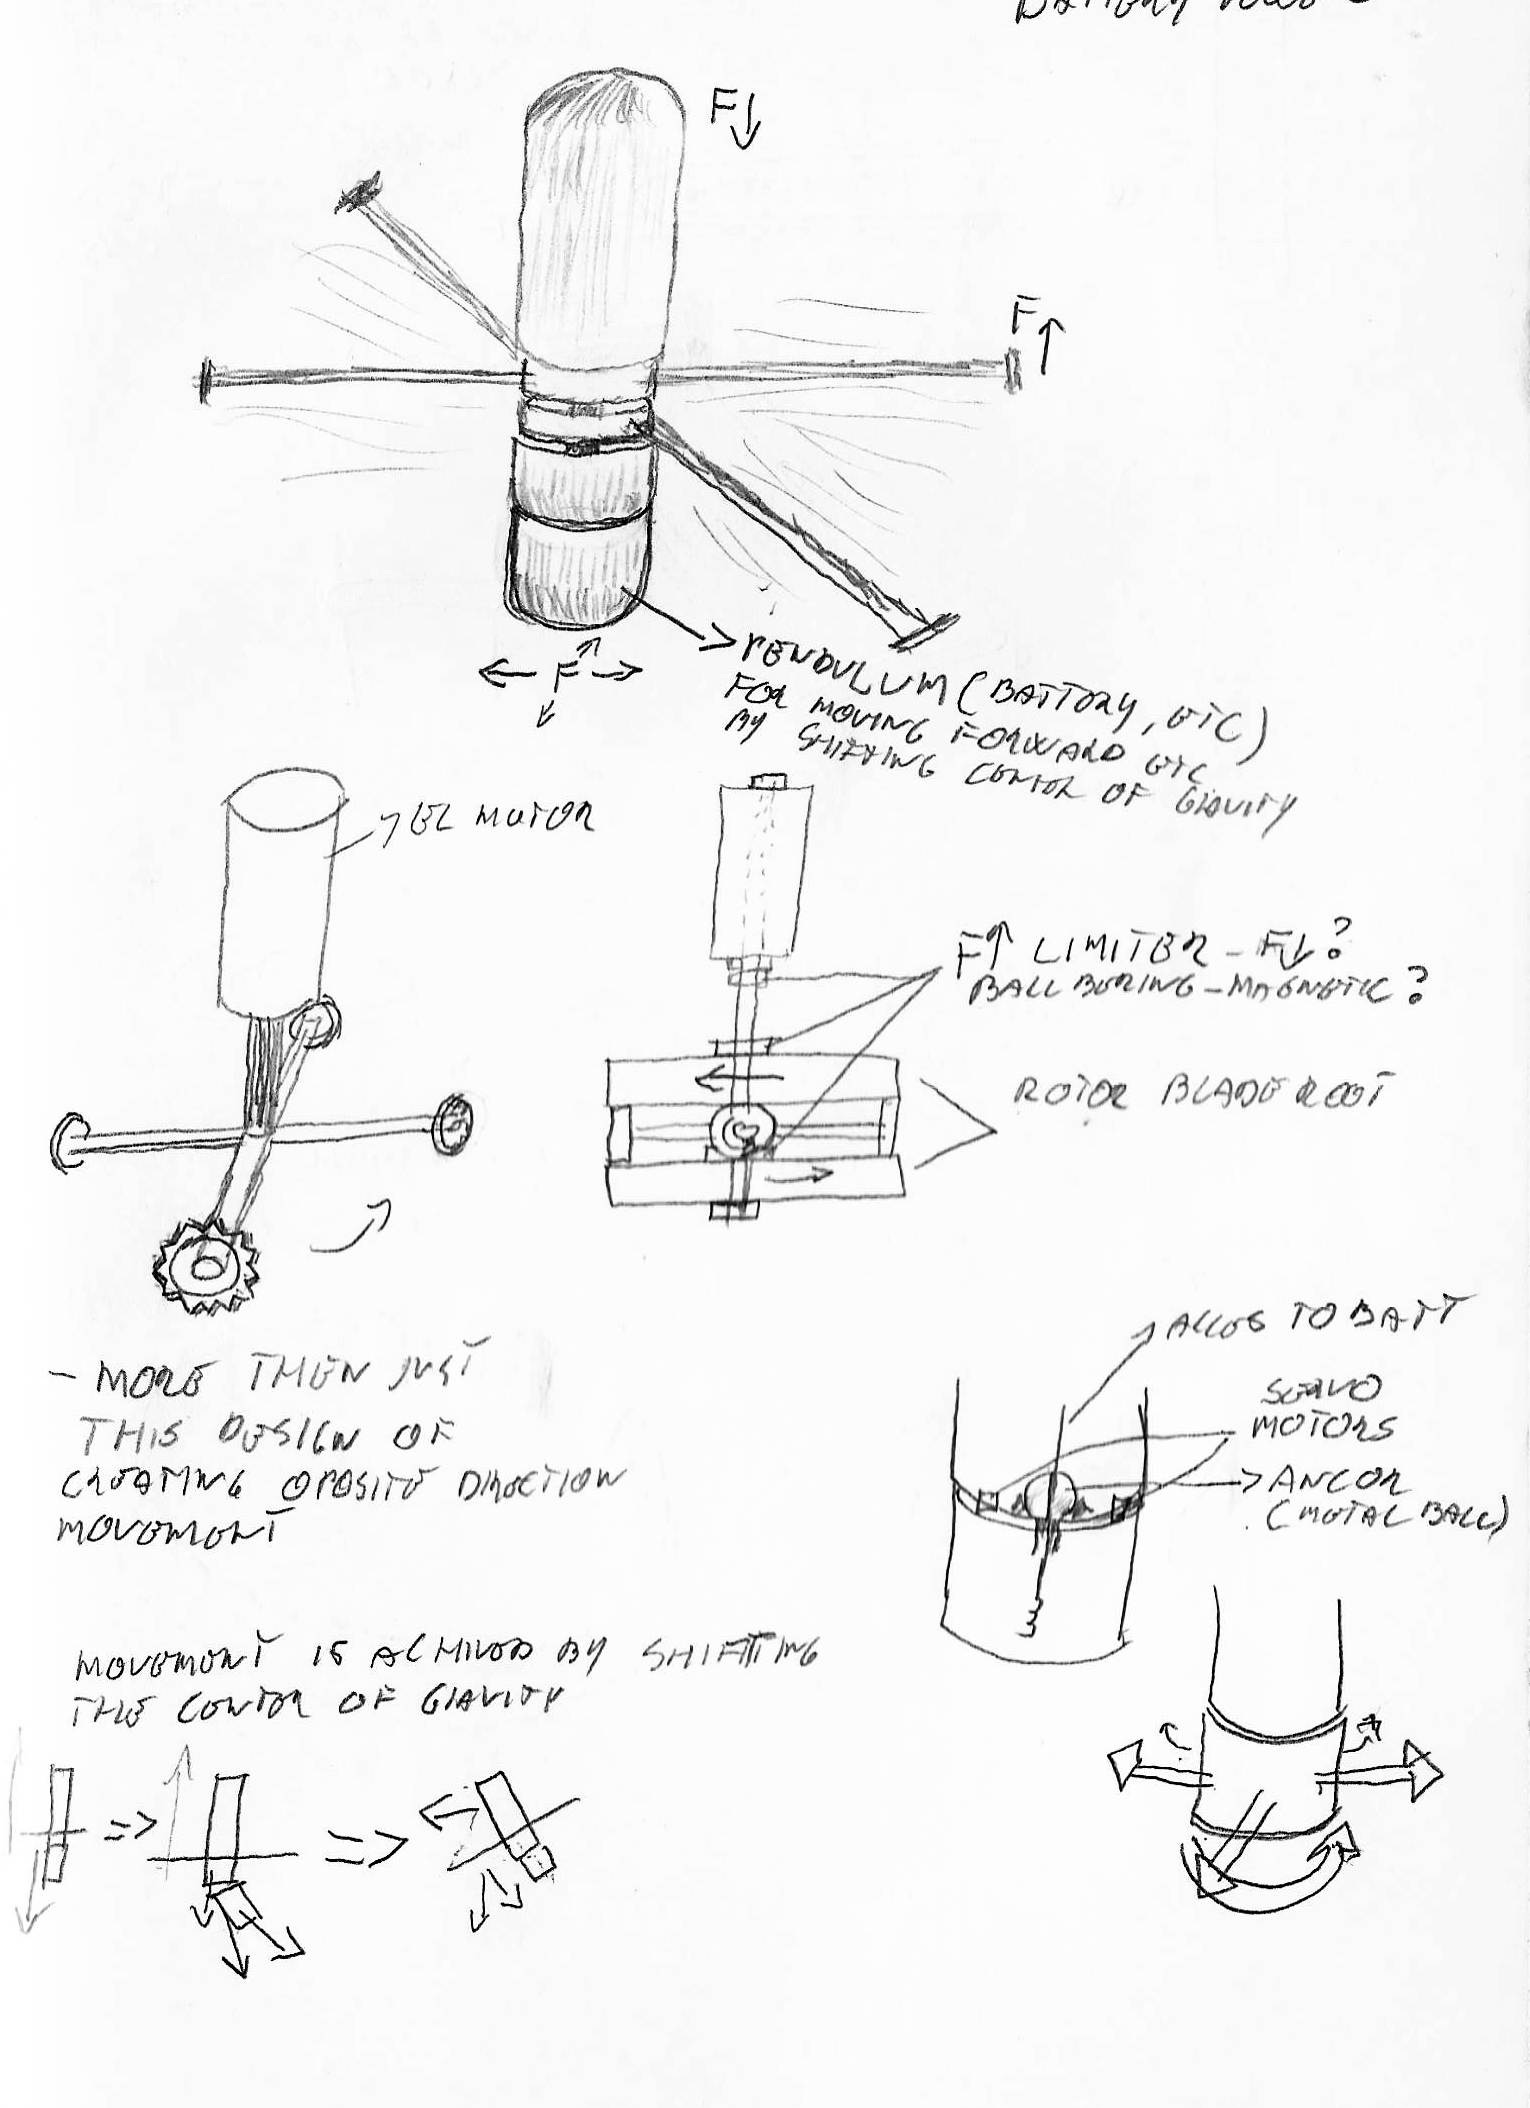 BATTERY
F↓
F↑
← F →
PENDULUM (BATTORY, ETC)
FOR MOVING FORWARD ETC
BY SHIFTING CENTOR OF GRAVITY
EL MOTOR
F↑ LIMITER - F↓?
BALL BERING - MAGNETIC?
ROTOR BLADE ROOT
- MORE THEN JUST
THIS DESIGN OF
CREATING OPOSITE DIRECTION
MOVEMENT
ALLES TO BATT
SERVO
MOTORS
ANCOR
(METAL BALL)
MOVEMENT IS ACHIVED BY SHIFTING
THE CENTOR OF GRAVITY